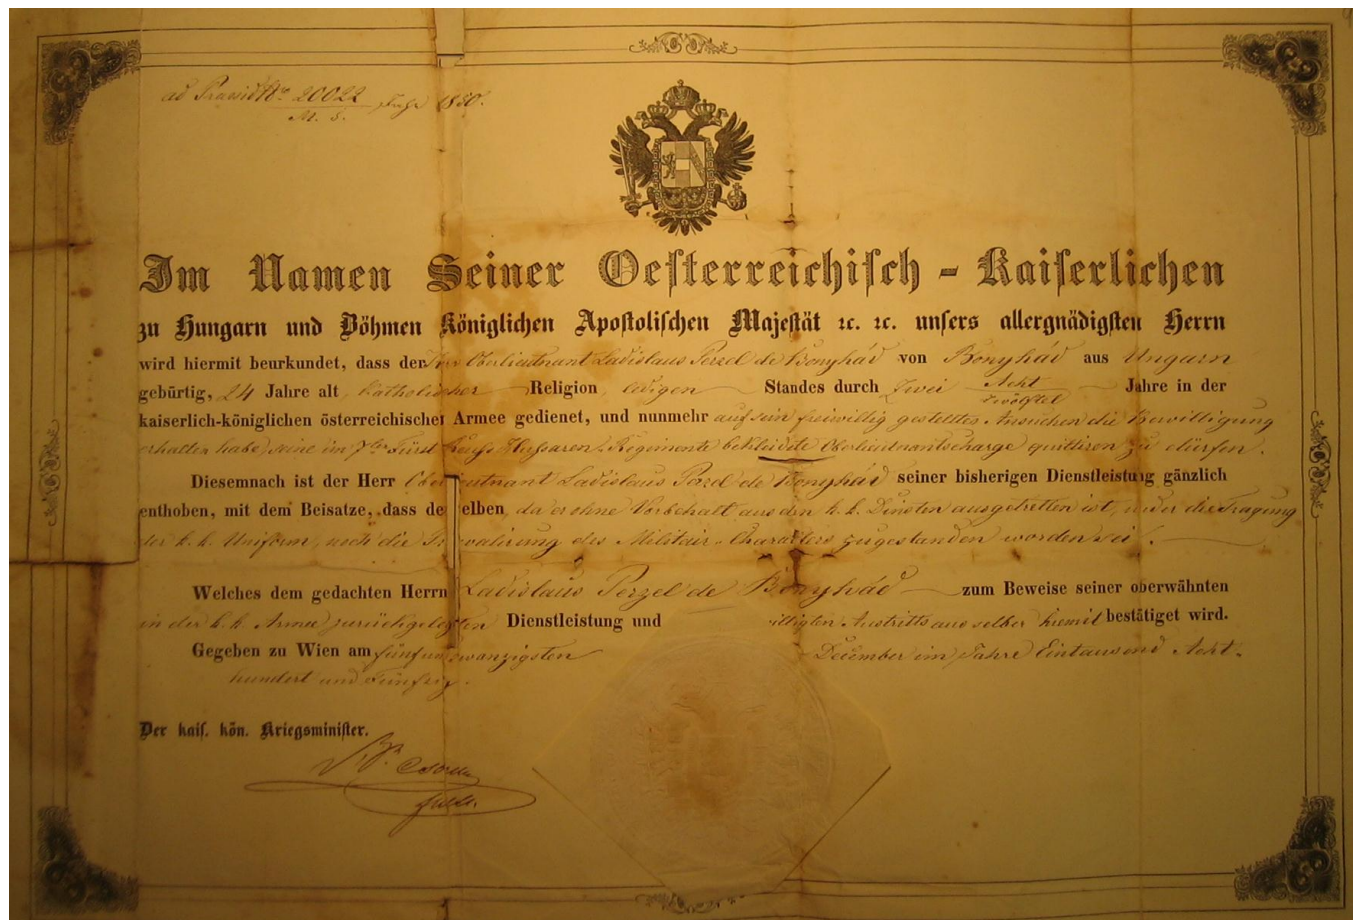 ad Praesid No. 20022 1850.
M. S.
Im Namen Seiner Oesterreichisch - Kaiserlichen
zu Hungarn und Böhmen Königlichen Apostolischen Majestät ꝛc. ꝛc. unsers allergnädigsten Herrn
wird hiermit beurkundet, dass der Oberlieutnant Ladislaus Perzel de Bonyhád von Bonyhád aus Ungarn
gebürtig, 24 Jahre alt Catholischer Religion ledigen Standes durch Zwei Acht zwölftel Jahre in der
kaiserlich-königlichen österreichischen Armee gedienet, und nunmehr auf sein freiwillig gestelltes Ansuchen die Bewilligung
erhalten habe, seine im 7ten Fürst Reuss Hussaren Regimente bekleidete Oberlieutnantscharge quittiren zu dürfen.
Diesemnach ist der Herr Oberlieutnant Ladislaus Perzel de Bonyhád seiner bisherigen Dienstleistung gänzlich
enthoben, mit dem Beisatze, dass demselben, da er ohne Vorbehalt aus den k. k. Diensten ausgetretten ist, weder die Tragung
der k. k. Uniform, noch die des Militair-Charakters zugestanden worden sei.
Welches dem gedachten Herrn Ladislaus Perzel de Bonyhád zum Beweise seiner oberwähnten
in der k. k. Armee zurückgelegten Dienstleistung und willigten Austritts aus selber hiemit bestätiget wird.
Gegeben zu Wien am fünfundzwanzigsten December im Jahre Eintausend Acht-
hundert und Fünfzig.
Der kais. kön. Kriegsminister.